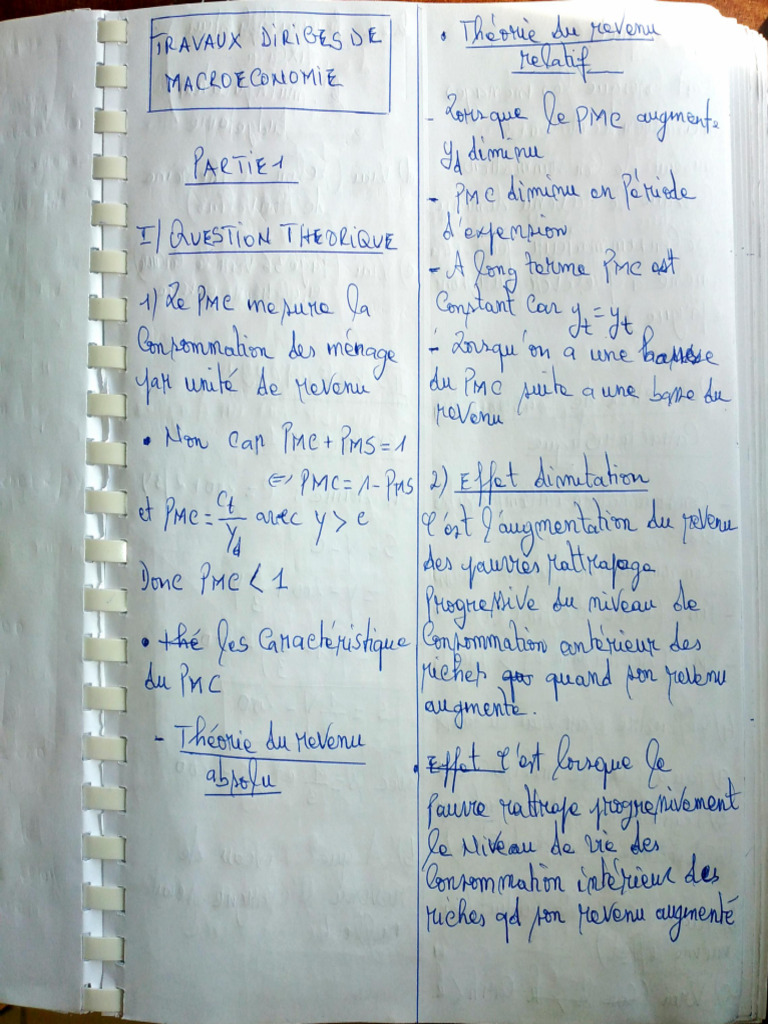 TRAVAUX DIRIGES DE
MACROECONOMIE
PARTIE 1
I) QUESTION THEORIQUE
1) Le PMC mesure la
Consommation des ménage
par unité de revenu
• Non car PMC + PMS = 1
⇔ PMC = 1 - PMS
et PMC = Ct/Yd avec y > c
Donc PMC < 1
• thé les Caractéristique
du PMC
- Théorie du revenu
absolu
• Théorie du revenu
relatif
- Lorsque le PMC augmente
Yd diminu
- PMC diminu en période
d'expension
- A long terme PMC est
Constant car yt = yt
- Lorsqu'on a une basse
du PMC suite a une basse du
revenu
2) Effet dimitation
C'est l'augmentation du revenu
des pauvres rattrapage
progressive du niveau de
Consommation antérieur des
riches quand son revenu
augmente.
• Effet C'est lorsque le
pauvre rattrape progressivement
le Niveau de vie des
Consommation intérieur des
riches qd son revenu augmenté